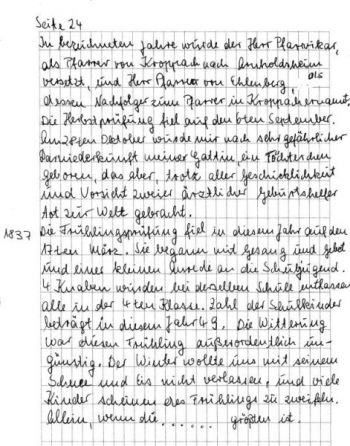 Seite 24
Im bezeichneten Jahre wurde der Herr Pfarrvikar,
als Pfarrer von Kroppach nach Arnoldshain
versetzt, und Herr Pfarrer von Ehlenberg, als
dessen Nachfolger zum Pfarrer in Kroppach ernannt.
Die Herbstprüfung fiel auf den 6ten September.
Am 28ten Oktober wurde mir nach sehr gefährlicher
Darniederkunft meiner Gattin ein Töchterchen
geboren, das aber, trotz aller Geschicklichkeit
und Vorsicht zweier ärztlicher Geburtshelfer
tot zur Welt gebracht.
1837 Die Frühlingsprüfung fiel in diesem Jahr auf den
17ten März. Sie begann mit Gesang und Gebet
und einer kleinen Anrede an die Schuljugend.
4 Knaben wurden bei derselben Schule entlassen
alle in der 4ten Klasse. Zahl der Schulkinder
beträgt in diesem Jahr 49. Die Witterung
war diesen Frühling außerordentlich un-
günstig. Der Winter wollte uns mit seinem
Schnee und Eis nicht verlassen, und viele
Kinder scheinen des Frühlings zu zweifeln.
Allein, wenn die ...... größten ist.